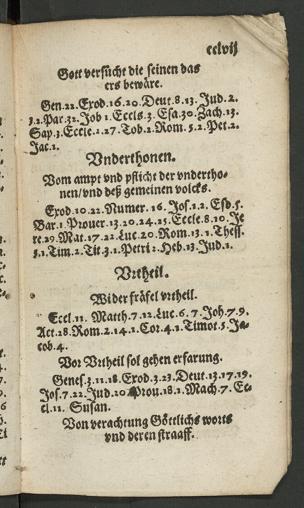 cclvij
Gott versůcht die seinen das
ers bewäre.
Gen.22. Exod.16.20. Deut.8.13. Jud.2.
3.2. Par.32. Job 1. Eccls.3. Esa.30. Zach.13.
Sap.3. Eccle.2.27. Tob.2. Rom.5.2. Pet.2.
Jac.1.
Vnderthonen.
Vom ampt vnd pflicht der vndertho-
nen/vnd deß gemeinen volcks.
Exod.10.22. Numer.16. Jos.1.2. Esd.5.
Bar.1. Prouer.13.20.24.25. Eccle.8.10. Je
re.29. Mat.17.22. Luc.20. Rom.13.1. Thess.
5.1. Tim.2. Tit.3.1. Petri 2. Heb.13. Jud.1.
Vrtheil.
Wider fräfel vrtheil.
Eccl.11. Matth.7.12. Luc.6.7. Joh.7.9.
Act.28. Rom.2.14.1. Cor.4.1. Timot.5. Ja-
cob.4.
Vor Vrtheil sol gehen erfarung.
Genes.3.11.18. Exod.3.23. Deut.13.17.19.
Jos.7.22. Jud.20. Prou.18.1. Mach.7. Ec-
cl.11. Susan.
Von verachtung Göttlichs worts
vnd deren straaff.